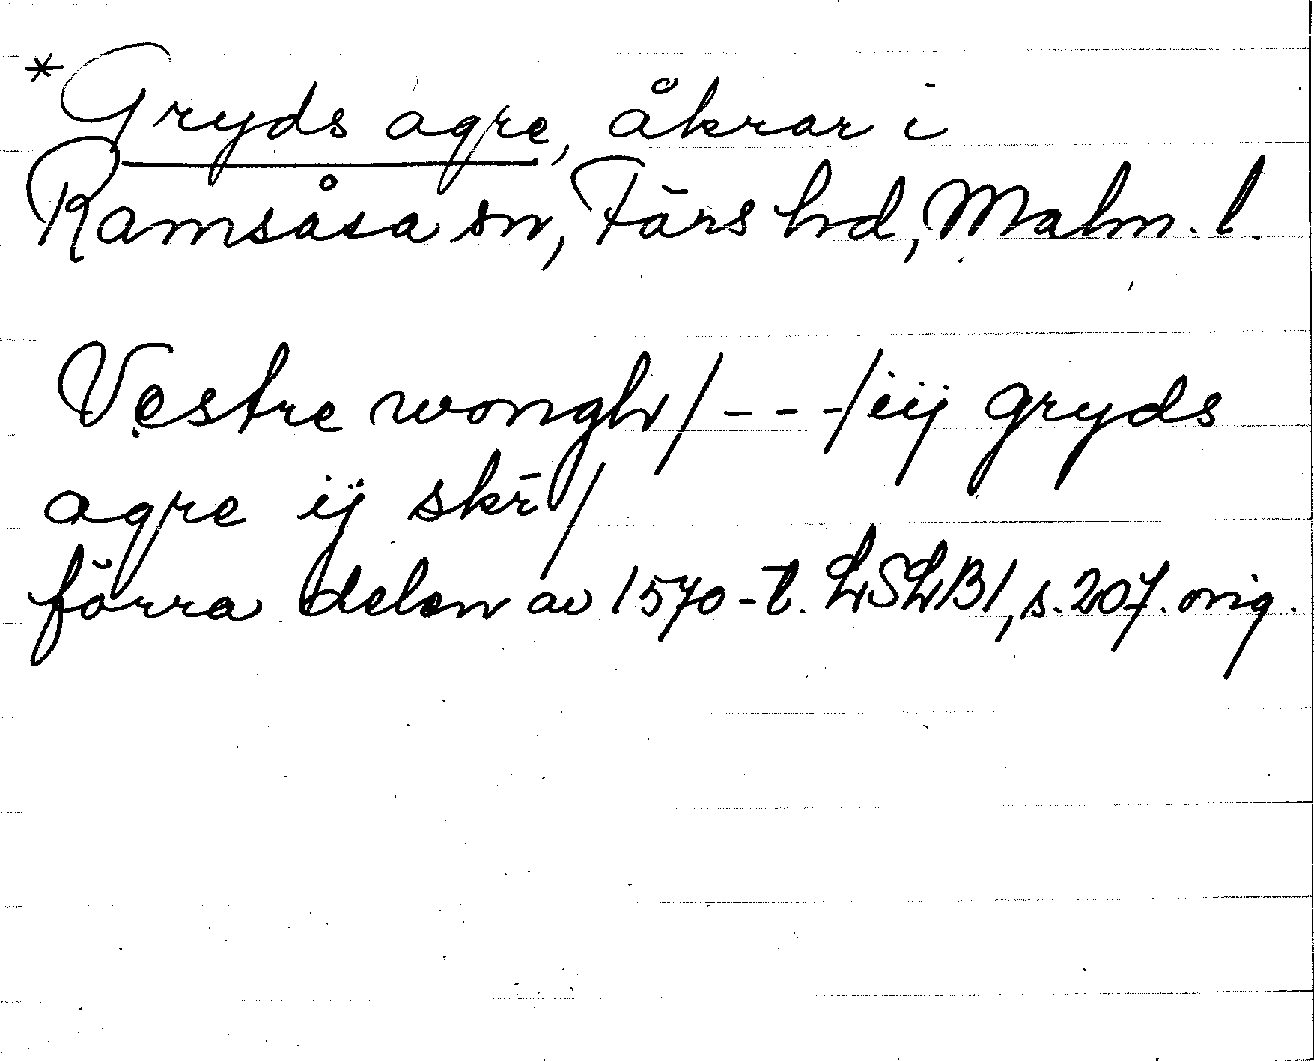 *Gryds agre, åkrar i
Ramsåsa sn, Färs hd, Malm. l.
Vestre wongh/ - - - /iij gryds
agre ij skr̄/
förra delen av 1570-t. LSLB1, s. 207. orig.